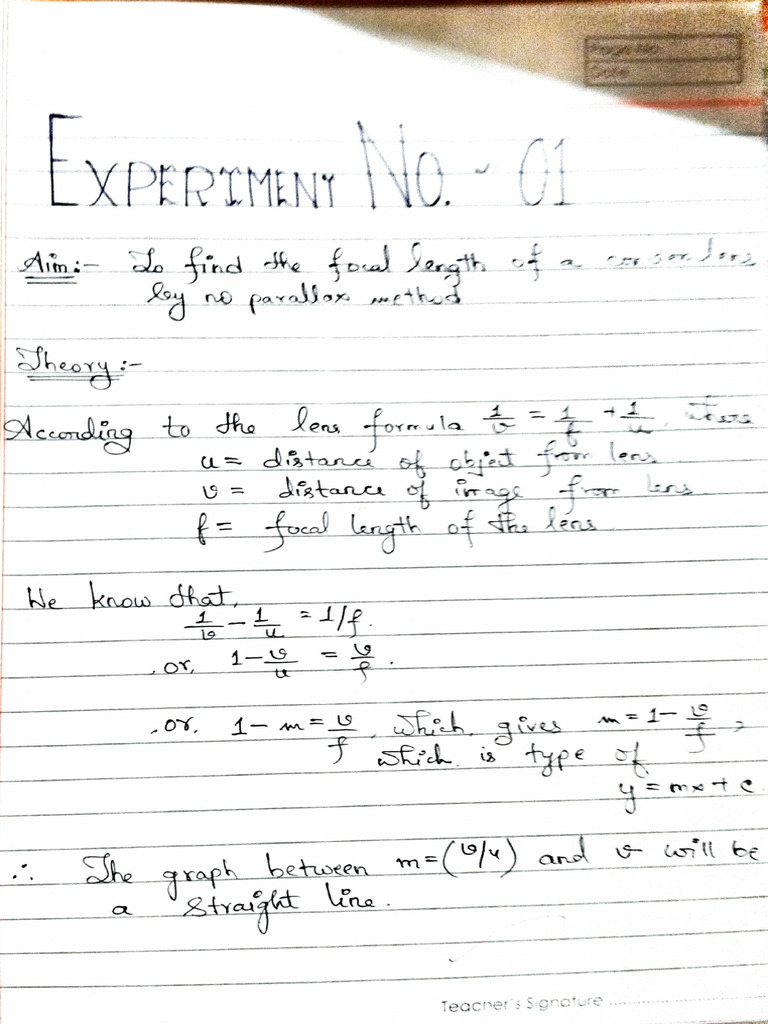 Page No.
Date
EXPERIMENT NO. - 01
Aim:- To find the focal length of a lens
by no parallax method
Theory:-
According to the lens formula 1/v = 1/f + 1/u, where
u = distance of object from lens
v = distance of image from lens
f = focal length of the lens
We know that,
1/v - 1/u = 1/f.
or, 1 - v/u = v/f.
or, 1 - m = v/f, which gives m = 1 - v/f,
which is type of
y = mx + c
∴ The graph between m = (v/u) and v will be
a straight line.
Teacher's Signature ....................